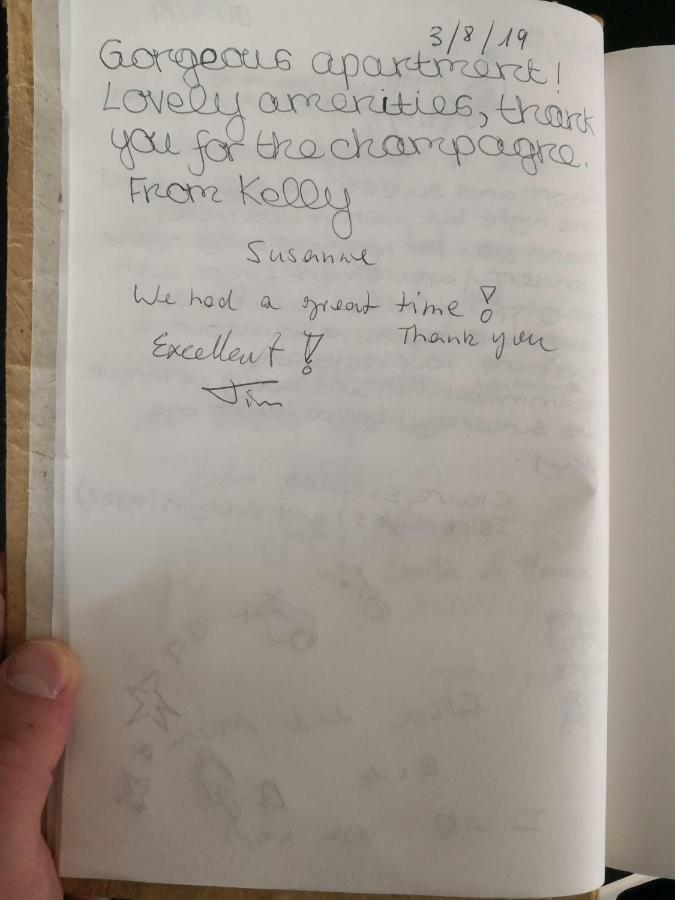 3/8/19
Gorgeous apartment!
Lovely amenities, thank
you for the champagne.
From Kelly
Susanne
We had a great time!
Thank you
Excellent!
Jim